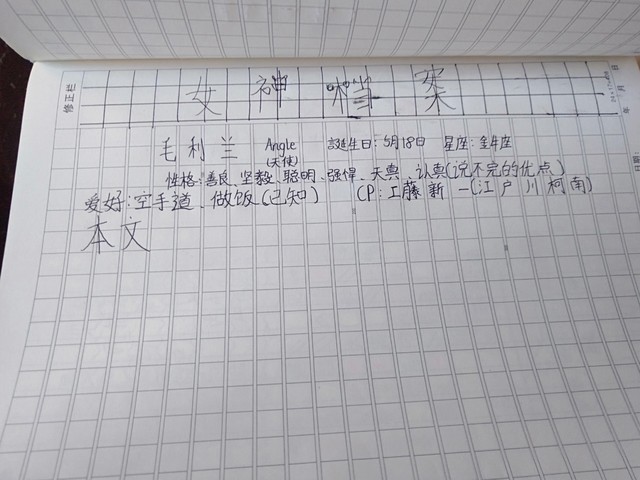 修正栏
女神档案
年 月 日
毛利兰 Angle 誕生日:5月18日 星座:金牛座
(天使)
性格:善良、坚毅、聪明、强悍、天真、认真(说不完的优点)
爱好:空手道、做饭(已知) CP:工藤新一(江户川柯南)
本文